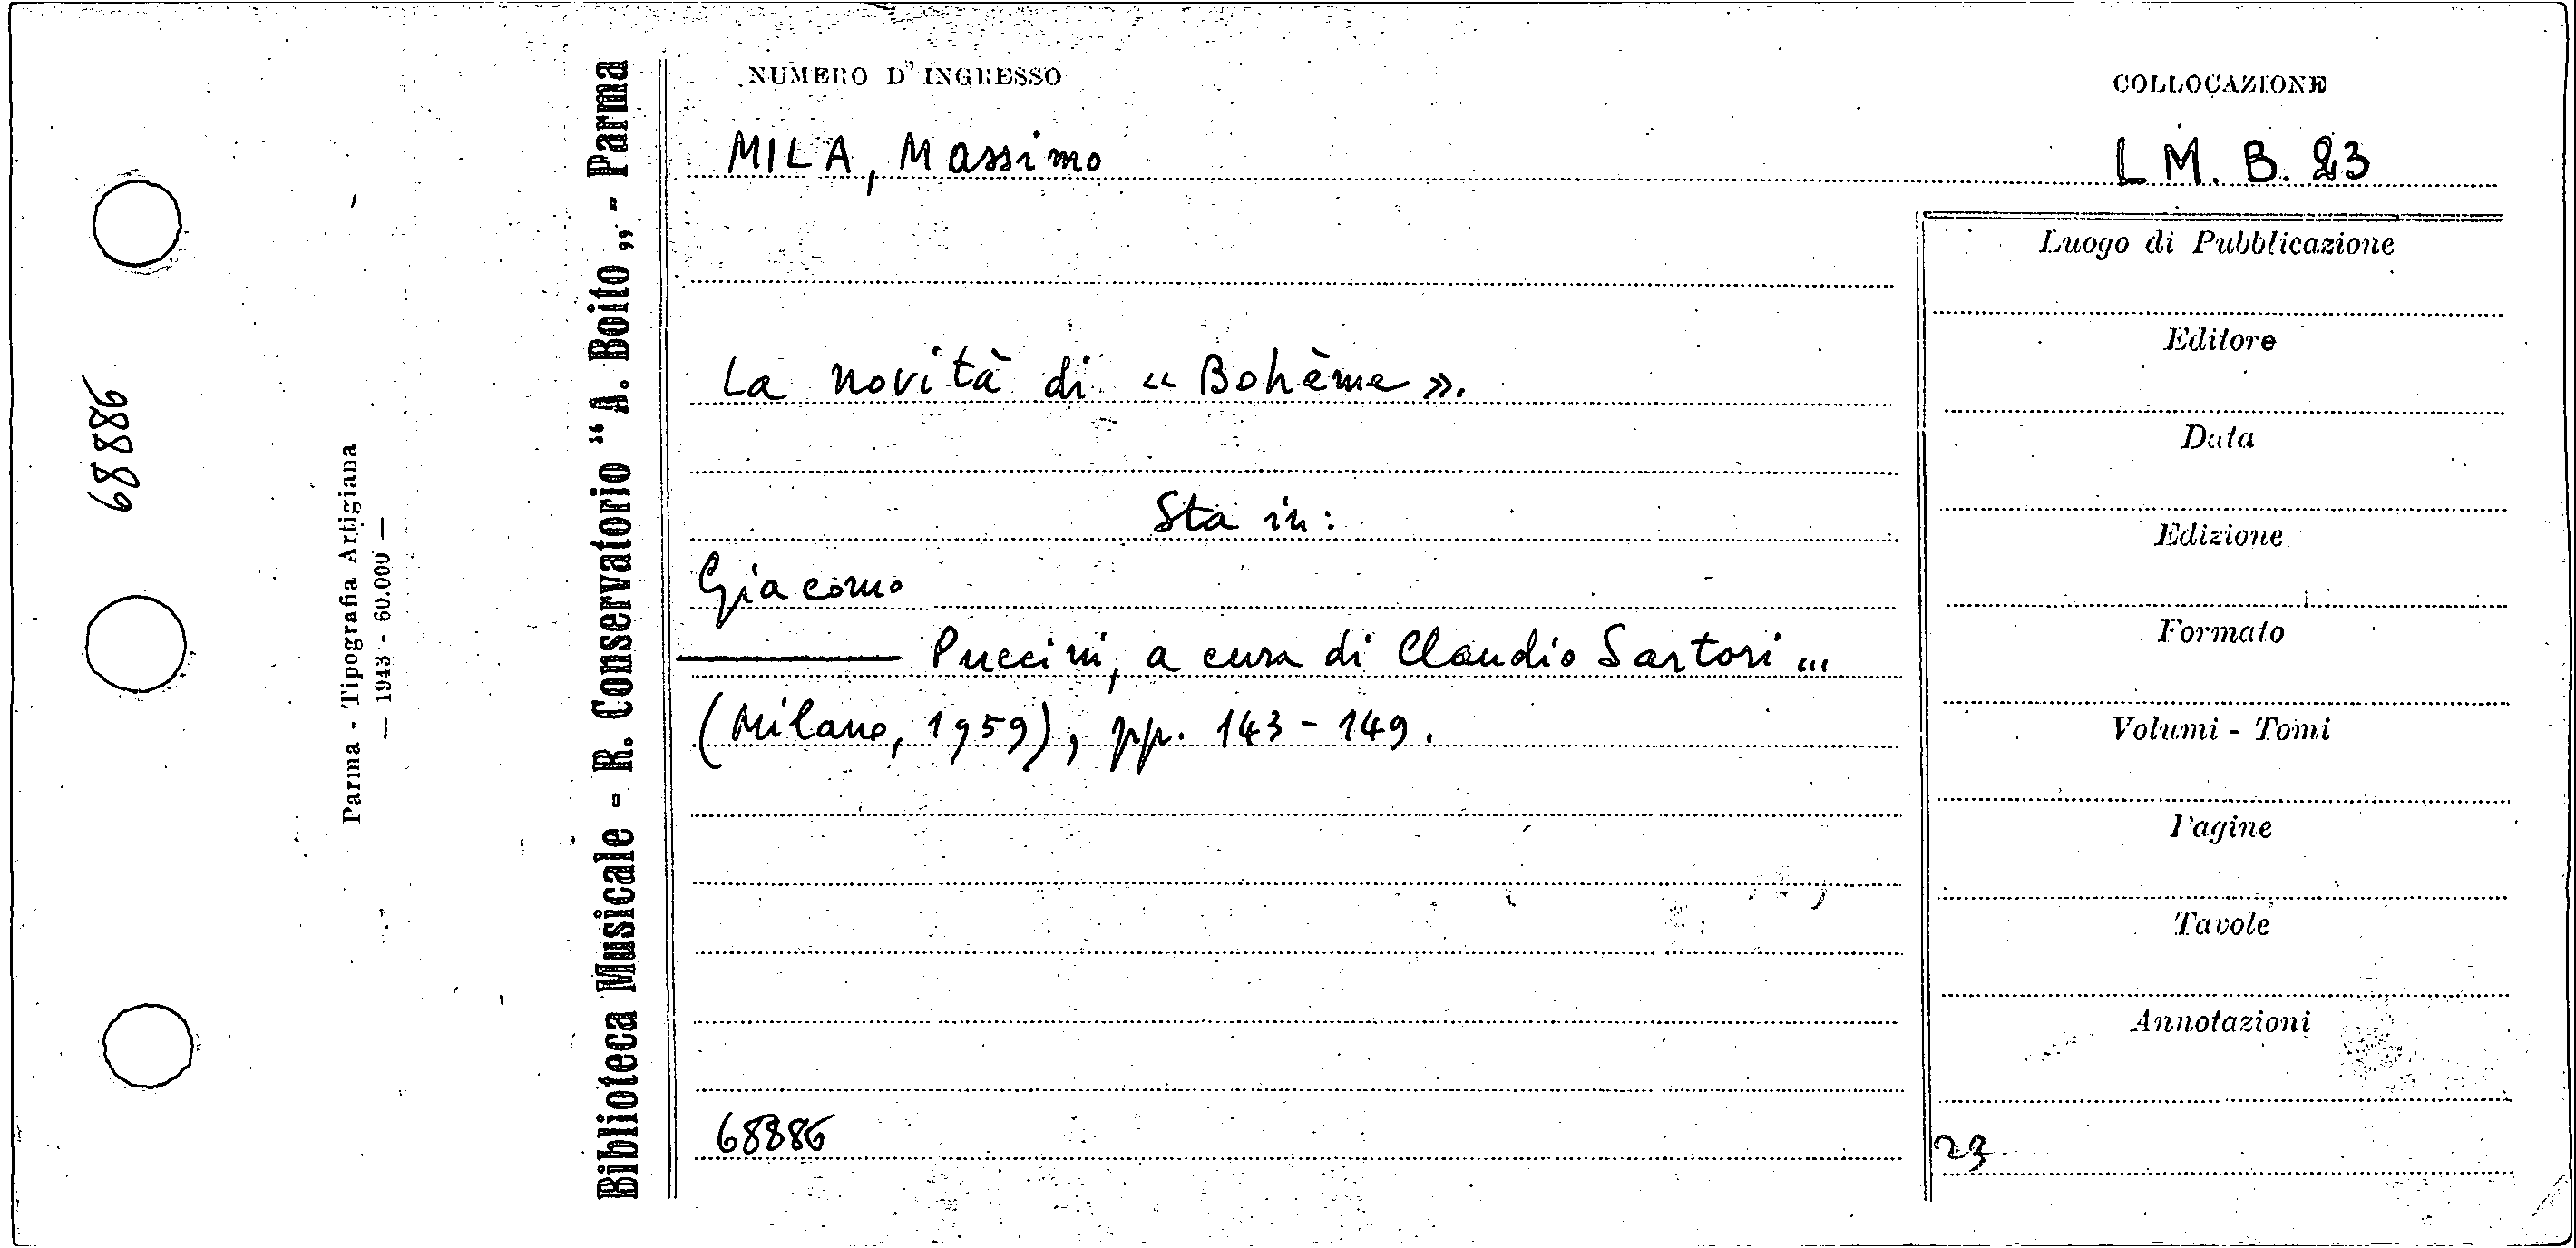 68886
Parma - Tipografia Artigiana
— 1943 - 60.000 —
Biblioteca Musicale - R. Conservatorio "A. Boito„ - Parma
NUMERO D'INGRESSO
COLLOCAZIONE
MILA, Massimo
L M. B. 23
La novità di « Bohème ».
Sta in:
Giacomo
——— Puccini, a cura di Claudio Sartori ...
(Milano, 1959), pp. 143 - 149.
68886
Luogo di Pubblicazione
Editore
Data
Edizione
Formato
Volumi - Tomi
Pagine
Tavole
Annotazioni
23